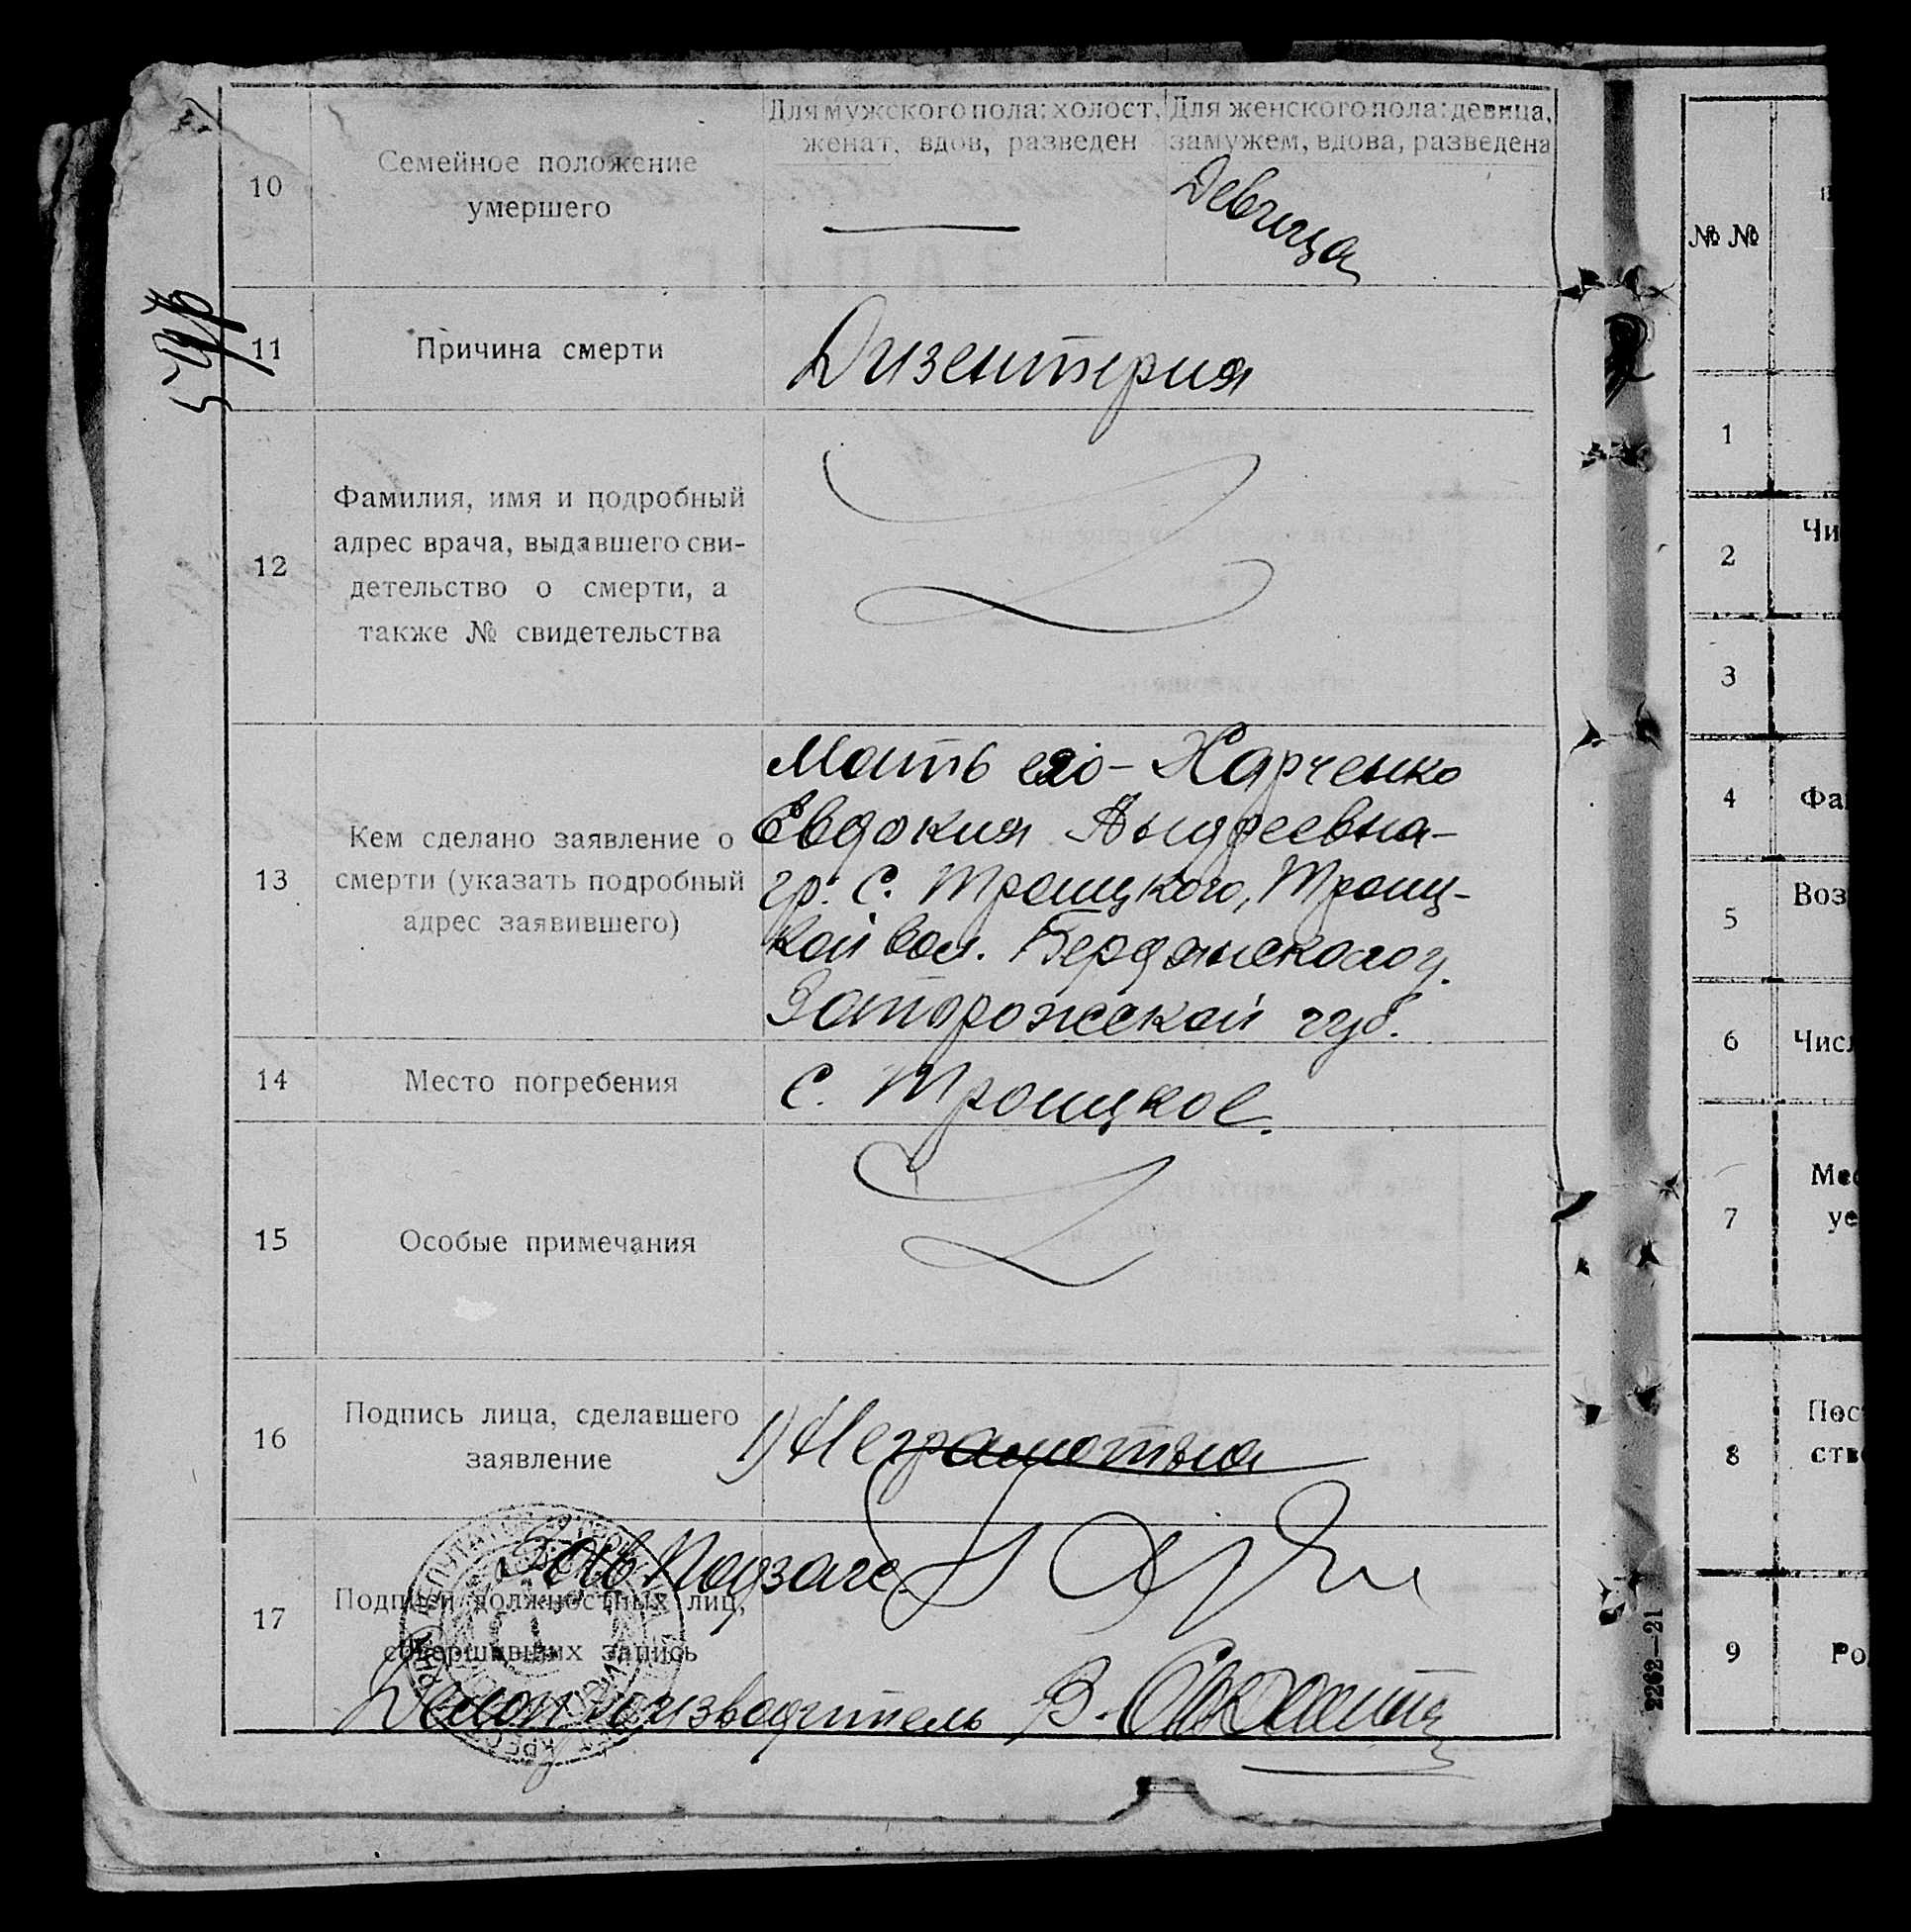 Для мужского пола: холост, женат, вдов, разведен
Для женского пола: девица, замужем, вдова, разведена
10
Семейное положение
умершего
Девица
11
Причина смерти
Дизентерия
12
Фамилия, имя и подробный
адрес врача, выдавшего сви-
детельство о смерти, а
также № свидетельства
13
Кем сделано заявление о
смерти (указать подробный
адрес заявившего)
Мать его - Харченко
Евдокия Андреевна -
гр. С. Троицкого, Троиц-
кой вол. Бердянского у.
Запорожской губ.
14
Место погребения
С. Троицкое.
15
Особые примечания
16
Подпись лица, сделавшего
заявление
1) Неграмотная
17
Подписи должностных лиц,
совершивших запись
Зав Подзагс
Делопроизводитель В.
№ №
1
2
Чи
3
4
Фа
5
Воз
6
Чис
7
Мес
уе
8
Пос
ств
9
Ро
2262—21